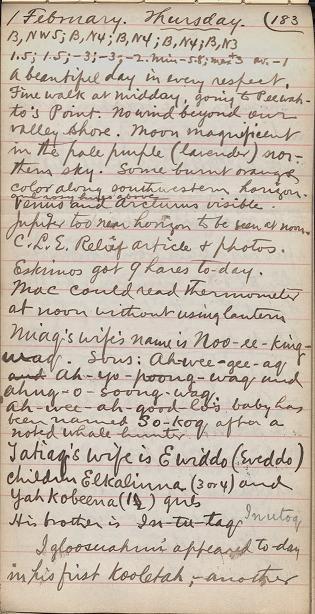 1 February. Thursday. (183
B, NW5; B, N4; B, N4; B, N4; B, N3
1.5; 1.5; -3; -3; -2. Min -5.8; max +3 av. -1
A beautiful day in every respect.
Fine walk at midday, going to Peewah-
to's Point. No wind beyond our
valley shore. Moon magnificent
in the pale purple (lavender) nor-
thern sky. Some burnt orange
color along southwestern horizon.
Venus and Arcturus visible.
Jupiter too near horizon to be seen at noon.
C.L.E. Relief article & photos.
Eskimos got 9 hares to-day.
Mac could read thermometer
at noon without using lantern
Nuaq's wife's name is Noo-ee-king-
waq. Sons: Ah-wee-gee-aq
and Ah-yo-poong-waq and
ahng-o-soong-waq.
Ah-wee-ah-good-loo's baby has
been named So-koq after a
noted whale hunter
Tatiaq's wife is Ewiddo (Eweddo)
children Elkalinna (3 or 4) and
Yahkobeena (1½) girls
His brother is In-tu-taq. Inutoq
Iglooswahni appeared to-day
in his first Kooletah, - another